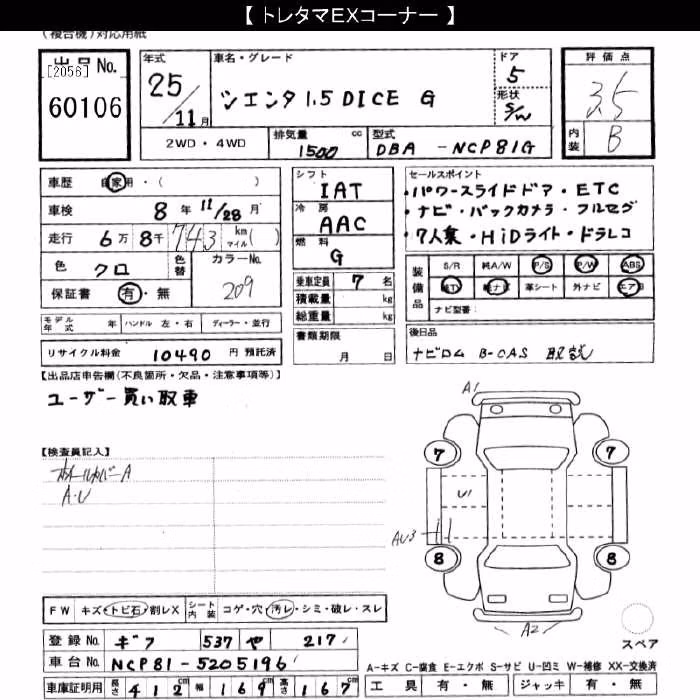 【 トレタマEXコーナー 】
(複合機)対応用紙
出品No.
[2056]
60106
年式
25/11月
車名・グレード
シエンタ1.5 DICE G
ドア
5
形状
S/W
評価点
3.5
内装
B
2WD・4WD
排気量 1500 cc
型式 DBA - NCP81G
車歴 自家用・( )
車検 8年 11/28月
走行 6万8千743 km マイル( )
色 クロ
色替
カラーNo. 209
保証書 有・無
シフト
IAT
冷房
AAC
燃料
G
乗車定員 7名
積載量 kg
総重量 kg
書類期限
月 日
セールスポイント
・パワースライドドア・ETC
・ナビ・バックカメラ・フルセグ
・7人乗・HiDライト・ドラレコ
装備品
S/R 純A/W P/S P/W ABS
純TV 純ナビ 革シート 外ナビ エアB
ナビ型番:
モデル年式 年 ハンドル 左・右 ディーラー・並行
リサイクル料金 10490 円 預託済
後日品
ナビロム B-CAS 取説
【出品店申告欄(不良箇所・欠品・注意事項等)】
ユーザー買い取車
【検査員記入】
ホイールカバーA
A.U
A1
7 7
U1
AU3
8 8
A2
スペア
FW キズ・トビ石・割レX
シート内装 コゲ・穴・汚レ・シミ・破レ・スレ
登録No. ギフ 537 や 217
車台No. NCP81-5205196
車庫証明用 長さ 412cm 幅 169cm 高さ 167cm
A-キズ C-腐食 E-エクボ S-サビ U-凹ミ W-補修 XX-交換済
工具 有・無 ジャッキ 有・無